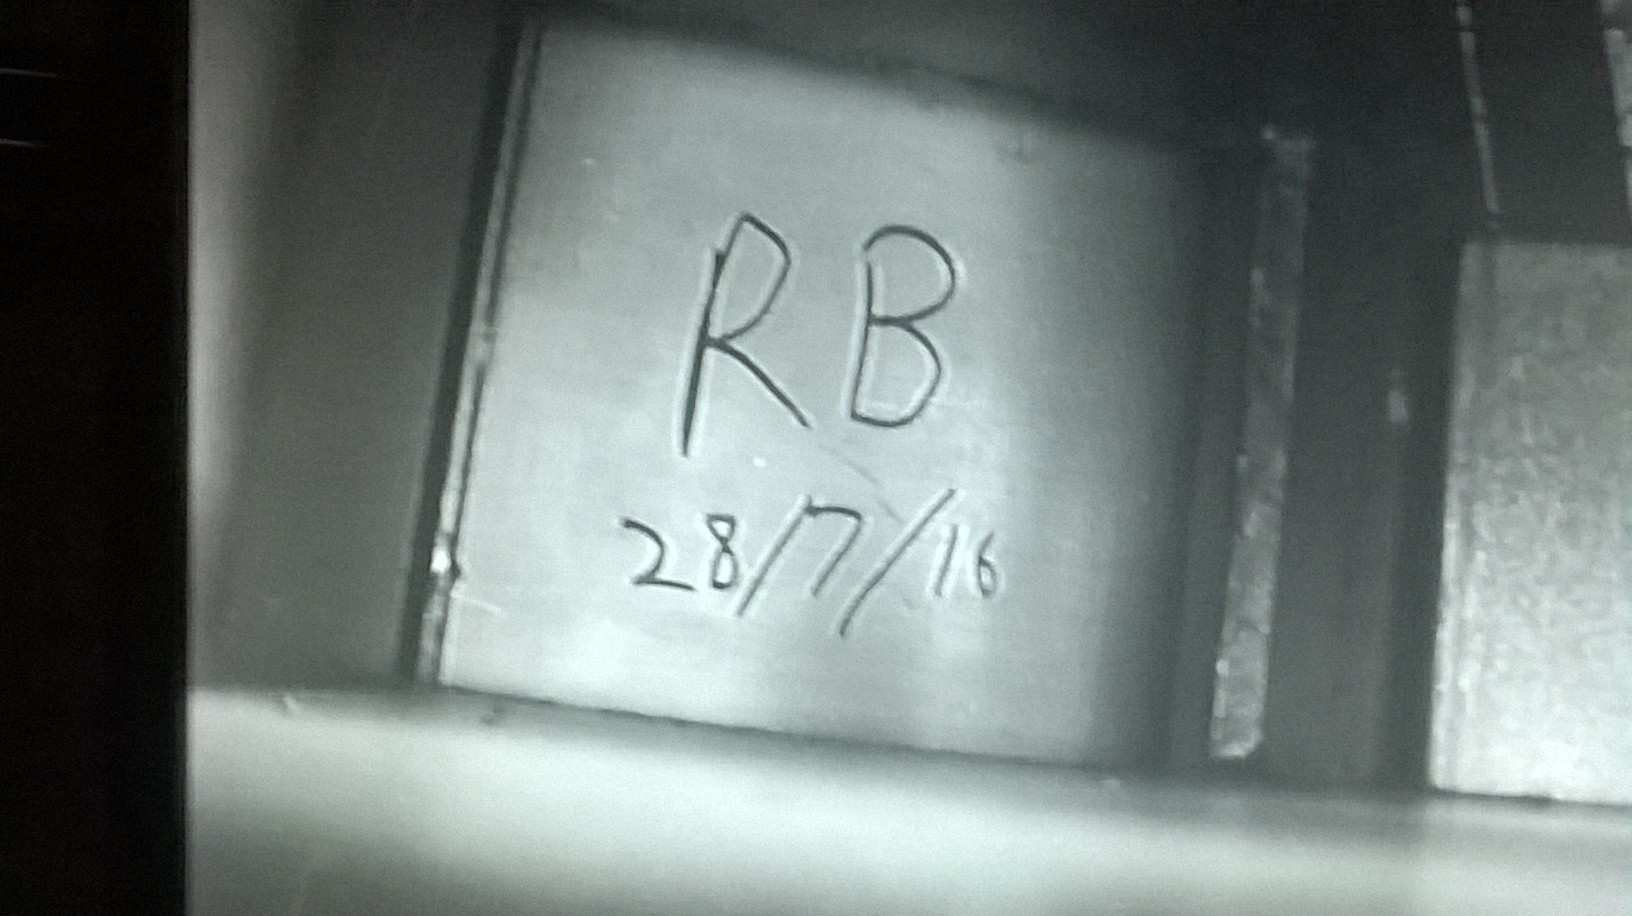 RB
28/7/16